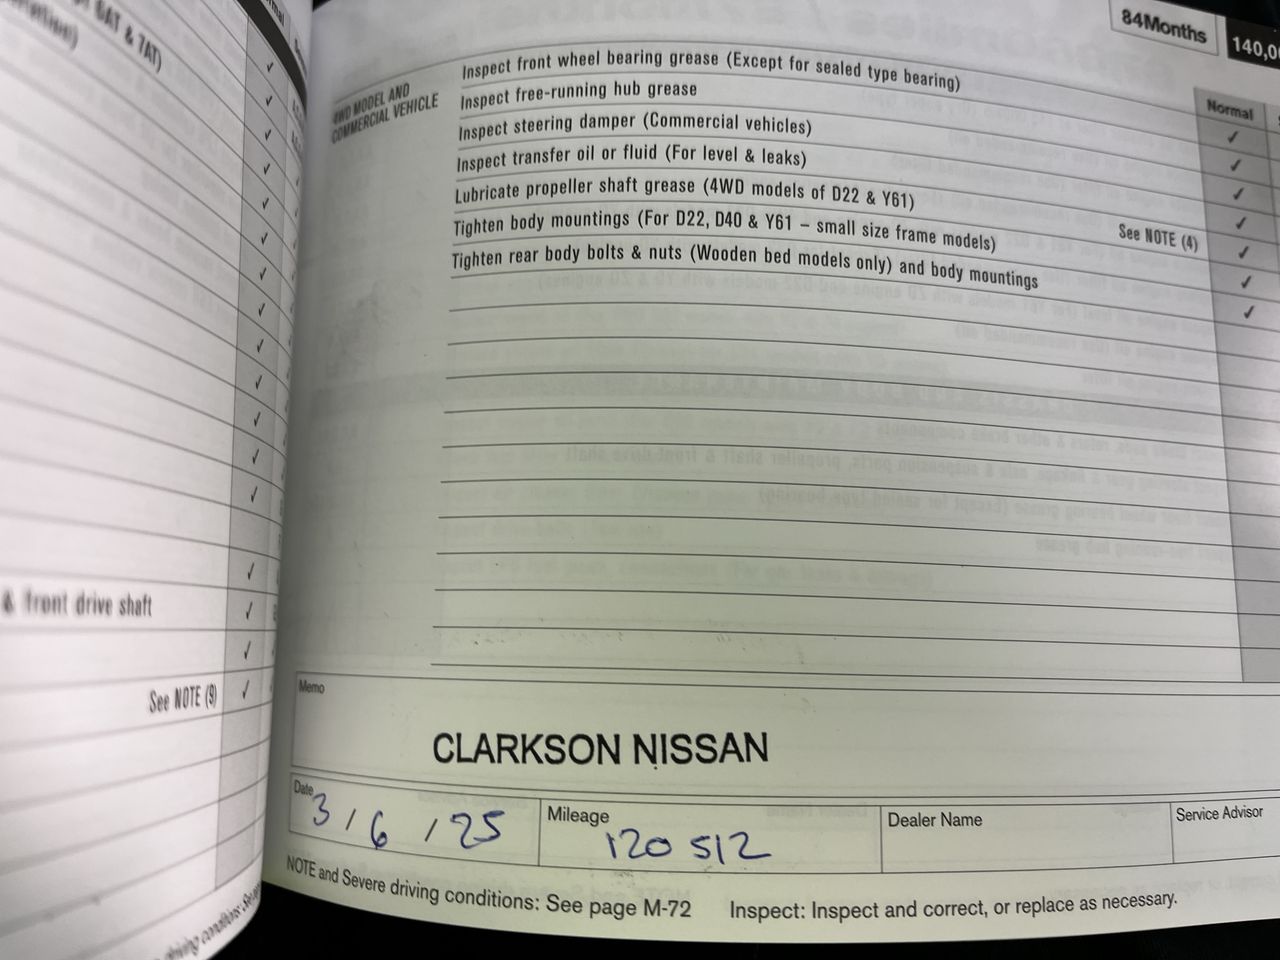 6AT & 7AT)
& front drive shaft
See NOTE (9)
84Months
4WD MODEL AND
COMMERCIAL VEHICLE
Normal
Inspect front wheel bearing grease (Except for sealed type bearing) ✓
Inspect free-running hub grease ✓
Inspect steering damper (Commercial vehicles) ✓
Inspect transfer oil or fluid (For level & leaks) ✓
Lubricate propeller shaft grease (4WD models of D22 & Y61) See NOTE (4) ✓
Tighten body mountings (For D22, D40 & Y61 – small size frame models) ✓
Tighten rear body bolts & nuts (Wooden bed models only) and body mountings ✓
Memo
CLARKSON NISSAN
Date 3/6/25
Mileage 120 512
Dealer Name
Service Advisor
NOTE and Severe driving conditions: See page M-72 Inspect: Inspect and correct, or replace as necessary.